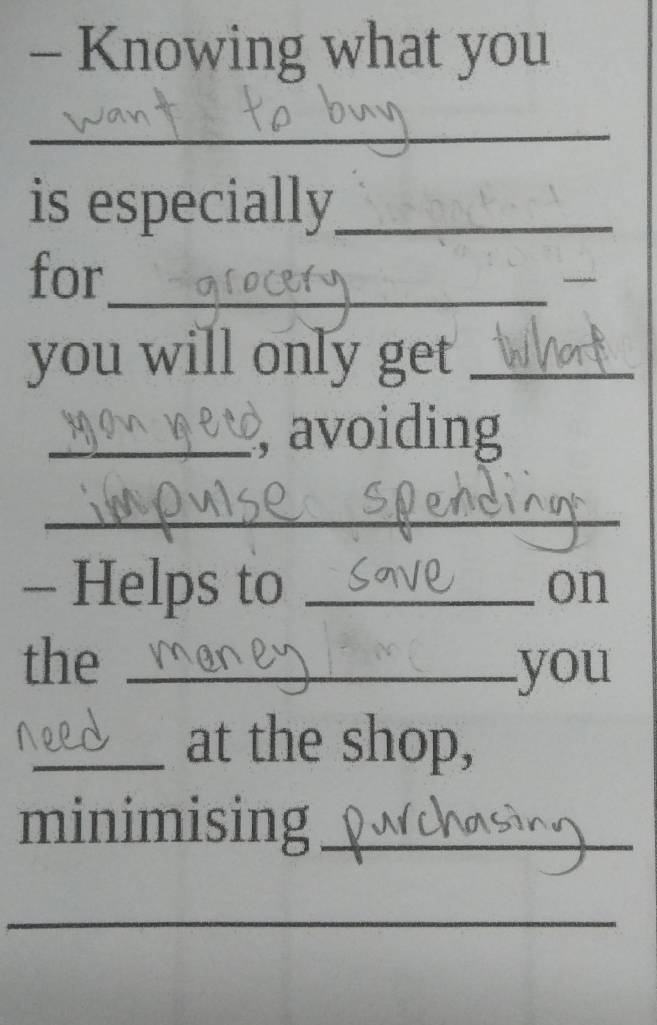 – Knowing what you
want to buy
is especially important
for grocery –
you will only get what
you need, avoiding
impulse spending
– Helps to save on
the money you
need at the shop,
minimising purchasing